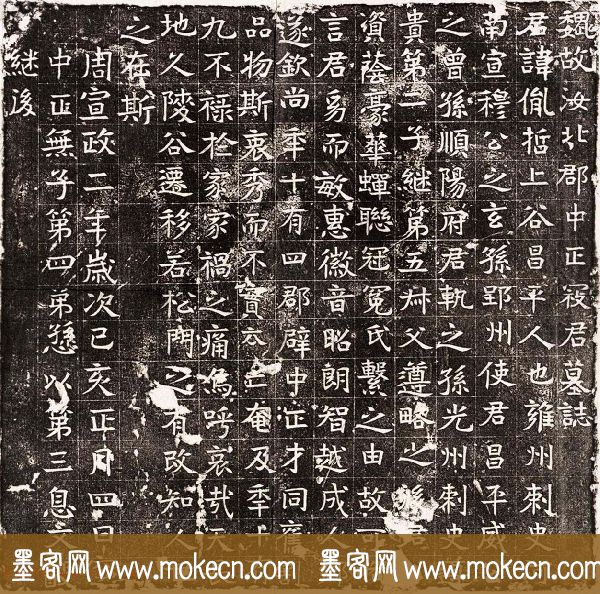 魏故汝北郡中正寇君墓誌
君諱胤哲上谷昌平人也雍州刺史
南宣穆公之玄孫郢州使君昌平威
之曾孫順陽府君軌之孫光州刺史
貴第二子継第五叔父遵略之
資蔭豪華蟬聯冠冕氏繫之由故
言君㓜而敏惠徽音昭朗智越成人
遂欽尚年十有四郡辟中正才同
品物斯衷秀而不實六二奄及年
九不祿於家家禍之痛嗚呼哀哉
地久陵谷遷移若松門之有改知
之在斯
周宣政二年歲次己亥正月四日
中正無子第四弟㥽以第三息文
継後
墨客网 www.mokecn.com 墨客网 www.mokecn.com